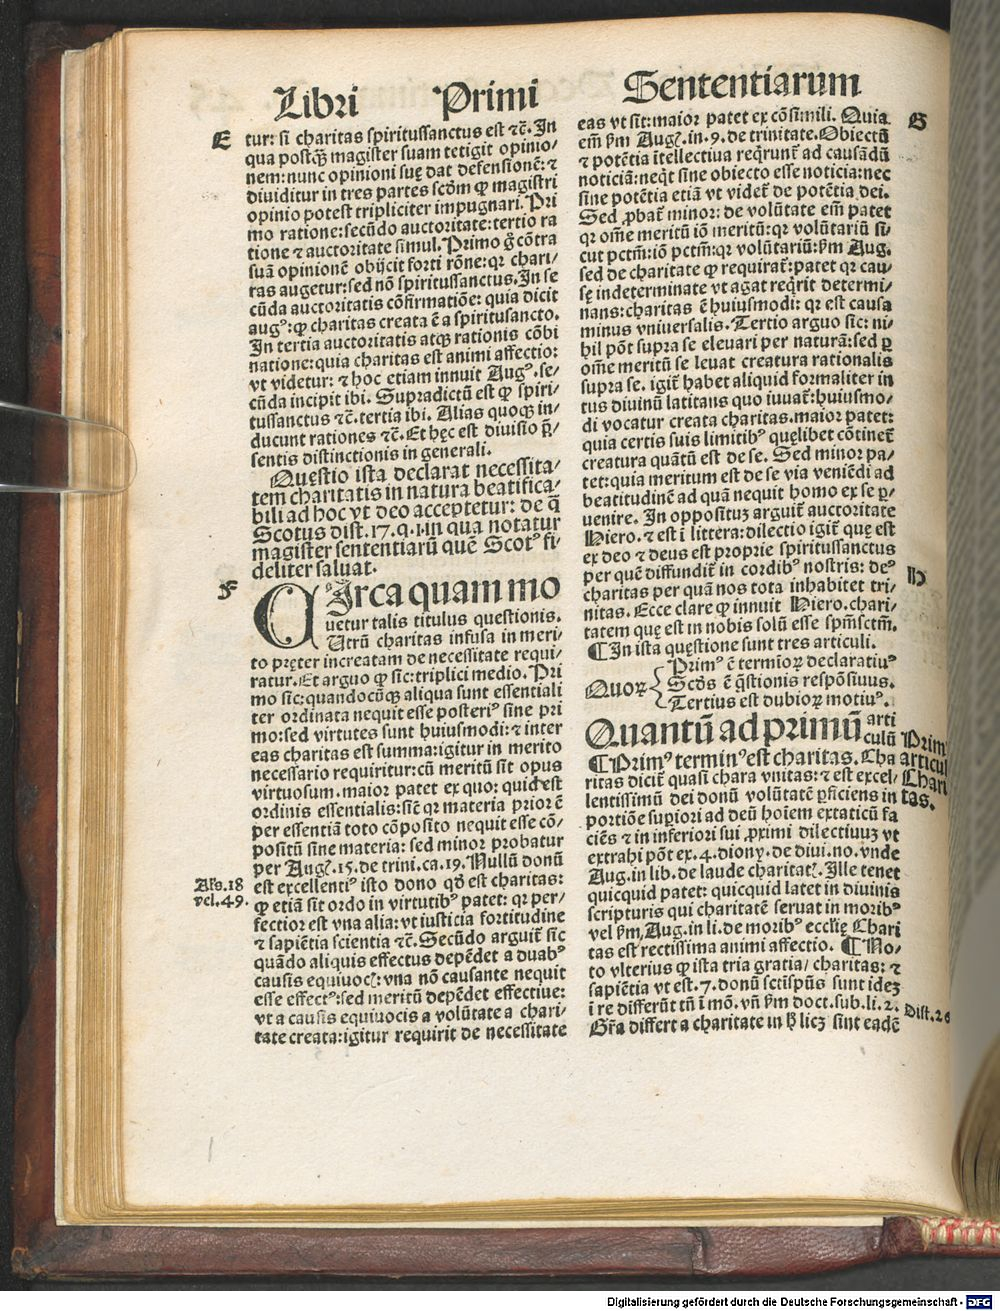 Libri Primi Sententiarum
E
tur: si charitas spiritussanctus est ⁊c̄. In
qua postq̄ꝫ magister suam tetigit opinio/
nem: nunc opinioni suę dat defensionē: ⁊
diuiditur in tres partes scd̄m ꝙ magistri
opinio potest tripliciter impugnari. Pri
mo ratione: secūdo auctoritate: tertio ra
tione ⁊ auctoritate simul. Primo g̊ cōtra
suā opinionē obijcit forti rōne: qꝛ chari/
tas augetur: sed nō spiritussanctus. In se
cūda auctoritatis cōfirmatiōe: quia dicit
augꝰ: ꝙ charitas creata ē a spiritusancto.
In tertia auctoritatis atqꝫ rationis cōbi
natione: quia charitas est animi affectio:
vt videtur: ⁊ hoc etiam innuit Augꝰ. se/
cūda incipit ibi. Supradictū est ꝙ spiri/
tussanctus ⁊c̄. tertia ibi. Alias quoqꝫ in/
ducunt rationes ⁊c̄. Et hęc est diuisio p̄/
sentis distinctionis in generali.
Questio ista declarat necessita/
tem charitatis in natura beatifica/
bili ad hoc vt deo acceptetur: de q̄
Scotus dist. 17. q. i. in qua notatur
magister sententiarū quē Scotꝰ fi/
deliter saluat.
F
CIrca quam mo
uetur talis titulus questionis.
Utrū charitas infusa in meri/
to pręter increatam de necessitate requi/
ratur. Et arguo ꝙ sic: triplici medio. Pri
mo sic: quandocūqꝫ aliqua sunt essentiali
ter ordinata nequit esse posteriꝰ sine pri
mo: sed virtutes sunt huiusmodi: ⁊ inter
eas charitas est summa: igitur in merito
necessario requiritur: cū meritū sit opus
virtuosum. maior patet ex quo: quid est
ordinis essentialis: sic̄ qꝛ materia prior ē
per essentiā toto cōposito nequit esse cō/
positū sine materia: sed minor probatur
per Augꝫ. 15. de trini. ca. 19. Nullū donū
est excellentiꝰ isto dono qd̄ est charitas:
ꝙ etiā sit ordo in virtutibꝰ patet: qꝛ per/
fectior est vna alia: vt iusticia fortitudine
⁊ sapiētia scientia ⁊c̄. Secūdo arguit̄ sic
quādo aliquis effectus depēdet a duabꝰ
causis equiuocꝭ: vna nō causante nequit
esse effectꝰ: sed meritū depēdet effectiue:
vt a causis equiuocis a volūtate a chari/
tate creata: igitur requirit de necessitate
Als. 18
vel. 49.
eas vt sit: maior patet ex cōsimili. Quia
em̄ ẜm Augꝫ. in. 9. de trinitate. Obiectū
⁊ potētia ītellectiua reqrunt̄ ad causādū
noticiā: neqꝫ sine obiecto esse noticia: nec
sine potētia etiā vt videt̄ de potētia dei.
Sed ꝓbat̄ minor: de volūtate em̄ patet
qꝛ om̄e meritū iō meritū: qꝛ volūtariū si/
cut pctm̄: iō pctm̄: qꝛ volūtariū: ẜm Aug.
sed de charitate ꝙ requirat̄: patet qꝛ cau/
sę indeterminate vt agat reqrit determi/
nans: charitas ē huiusmodi: qꝛ est causa
minus vniuersalis. Tertio arguo sic: ni/
hil pōt supra se eleuari per naturā: sed ꝑ
om̄e meritū se leuat creatura rationalis
supra se. igit̄ habet aliquid formaliter in
tus diuinū latitans quo iuuat̄: huiusmo/
di vocatur creata charitas. maior patet:
quia certis suis limitibꝰ quęlibet cōtinet̄
creatura quātū est de se. Sed minor pa/
tet: quia meritum est de se via veniēdi ad
beatitudinē ad quā nequit homo ex se ꝑ/
uenire. In oppositūꝫ arguit̄ auctoritate
Hiero. ⁊ est ī littera: dilectio igit̄ quę est
ex deo ⁊ deus est proprie spiritussanctus
per quē diffundit̄ in cordibꝰ nostris: deꝰ
charitas per quā nos tota inhabitet tri/
nitas. Ecce clare ꝙ innuit Hiero. chari/
tatem quę est in nobis solū esse spm̄sctm̄.
¶ In ista quęstione sunt tres articuli.
Quoꝝ
Primꝰ ē termioꝝ declaratiuꝰ
Scd̄s ē q̄stionis respōsiuus.
Tertius est dubioꝝ motiuꝰ.
Quantū ad primū arti
culū
¶ Primꝰ terminꝰ est charitas. Cha
ritas dicit̄ quasi chara vnitas: ⁊ est excel/
lentissimū dei donū volūtatē ꝑficiens in
portiōe suꝑiori ad deū hoīem extaticū fa
ciēs ⁊ in inferiori sui ꝓximi dilectiuuꝫ vt
extrahi pōt ex. 4. diony. de diui. no. vnde
Aug. in lib. de laude charitatꝭ. Ille tenet
quicquid patet: quicquid latet in diuinis
scripturis qui charitatē seruat in moribꝰ
vel ẜm Aug. in li. de moribꝰ eccłię Chari
tas est rectissima animi affectio. ¶ No/
to vlterius ꝙ ista tria gratia/ charitas: ⁊
sapiētia vt est. 7. donū sctīspūs sunt ideꝫ
ī re differūt tn̄ ī mō. vn̄ ẜm doct. sub. li. 2.
Gr̄a differt a charitate in h̄ licꝫ sint eadē
G
H
Primꝰ
articul
Chari
tas.
Dist. 26
Digitalisierung gefördert durch die Deutsche Forschungsgemeinschaft - DFG